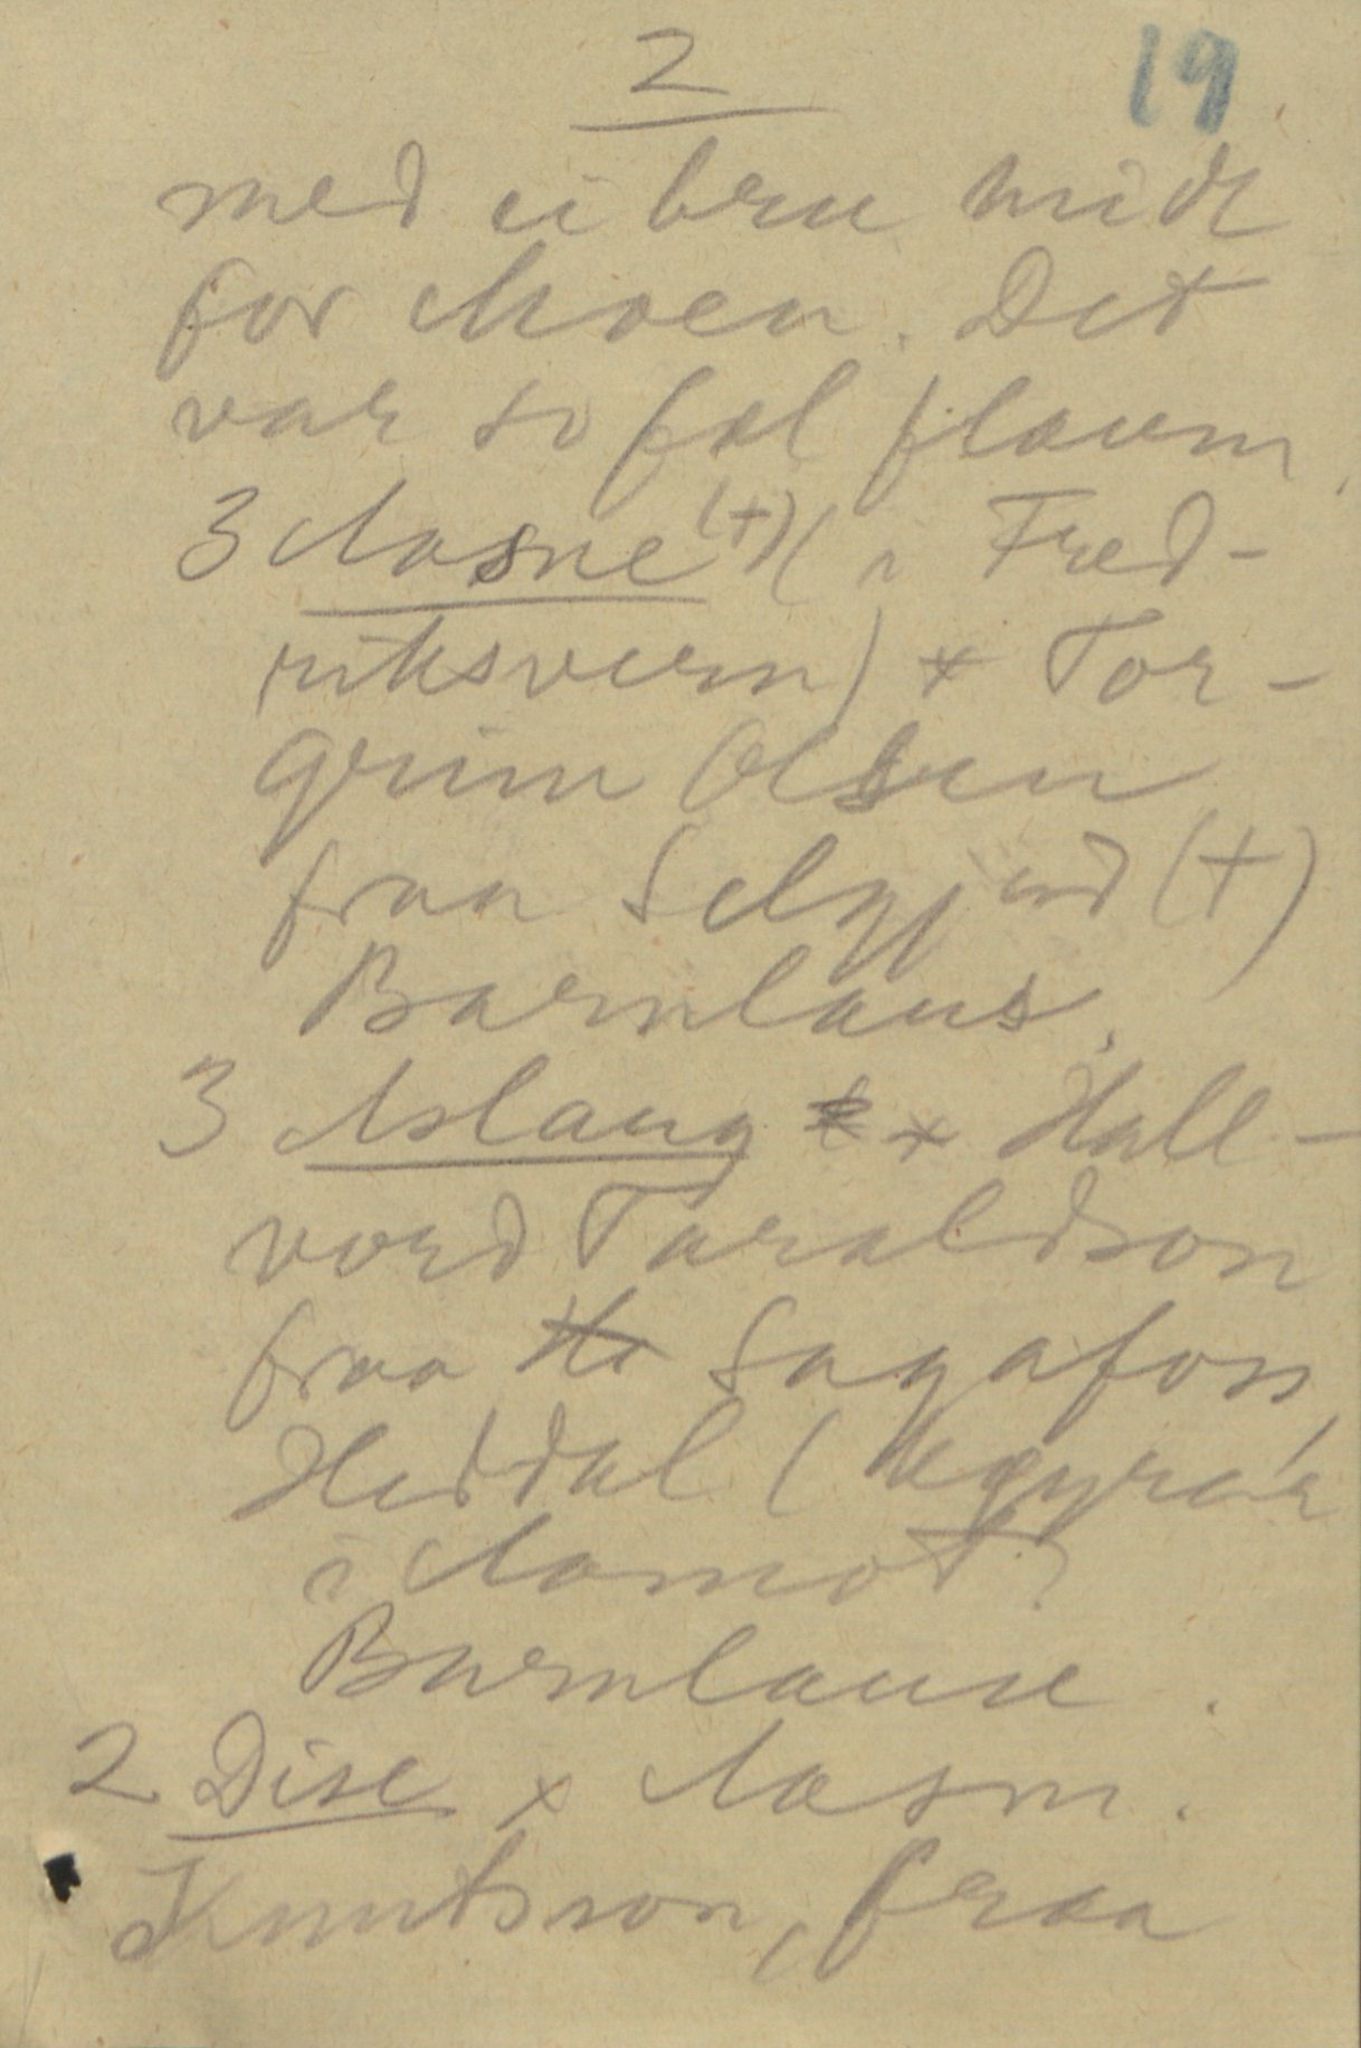 2 19
med ei bru midt
for Moen. Det
var so fæl flaum.
3 Aasne (+) (i Fred-
riksvern) x Tor-
grim Olsen
fraa Selgjord (+)
Barnlaus.
3 Aslaug x Hall-
vord Taraldson
fraa Sagafoss
Heddal (
i Aamot)
Barnlause.
2 Dise x Aasm.
Knutsson, fraa